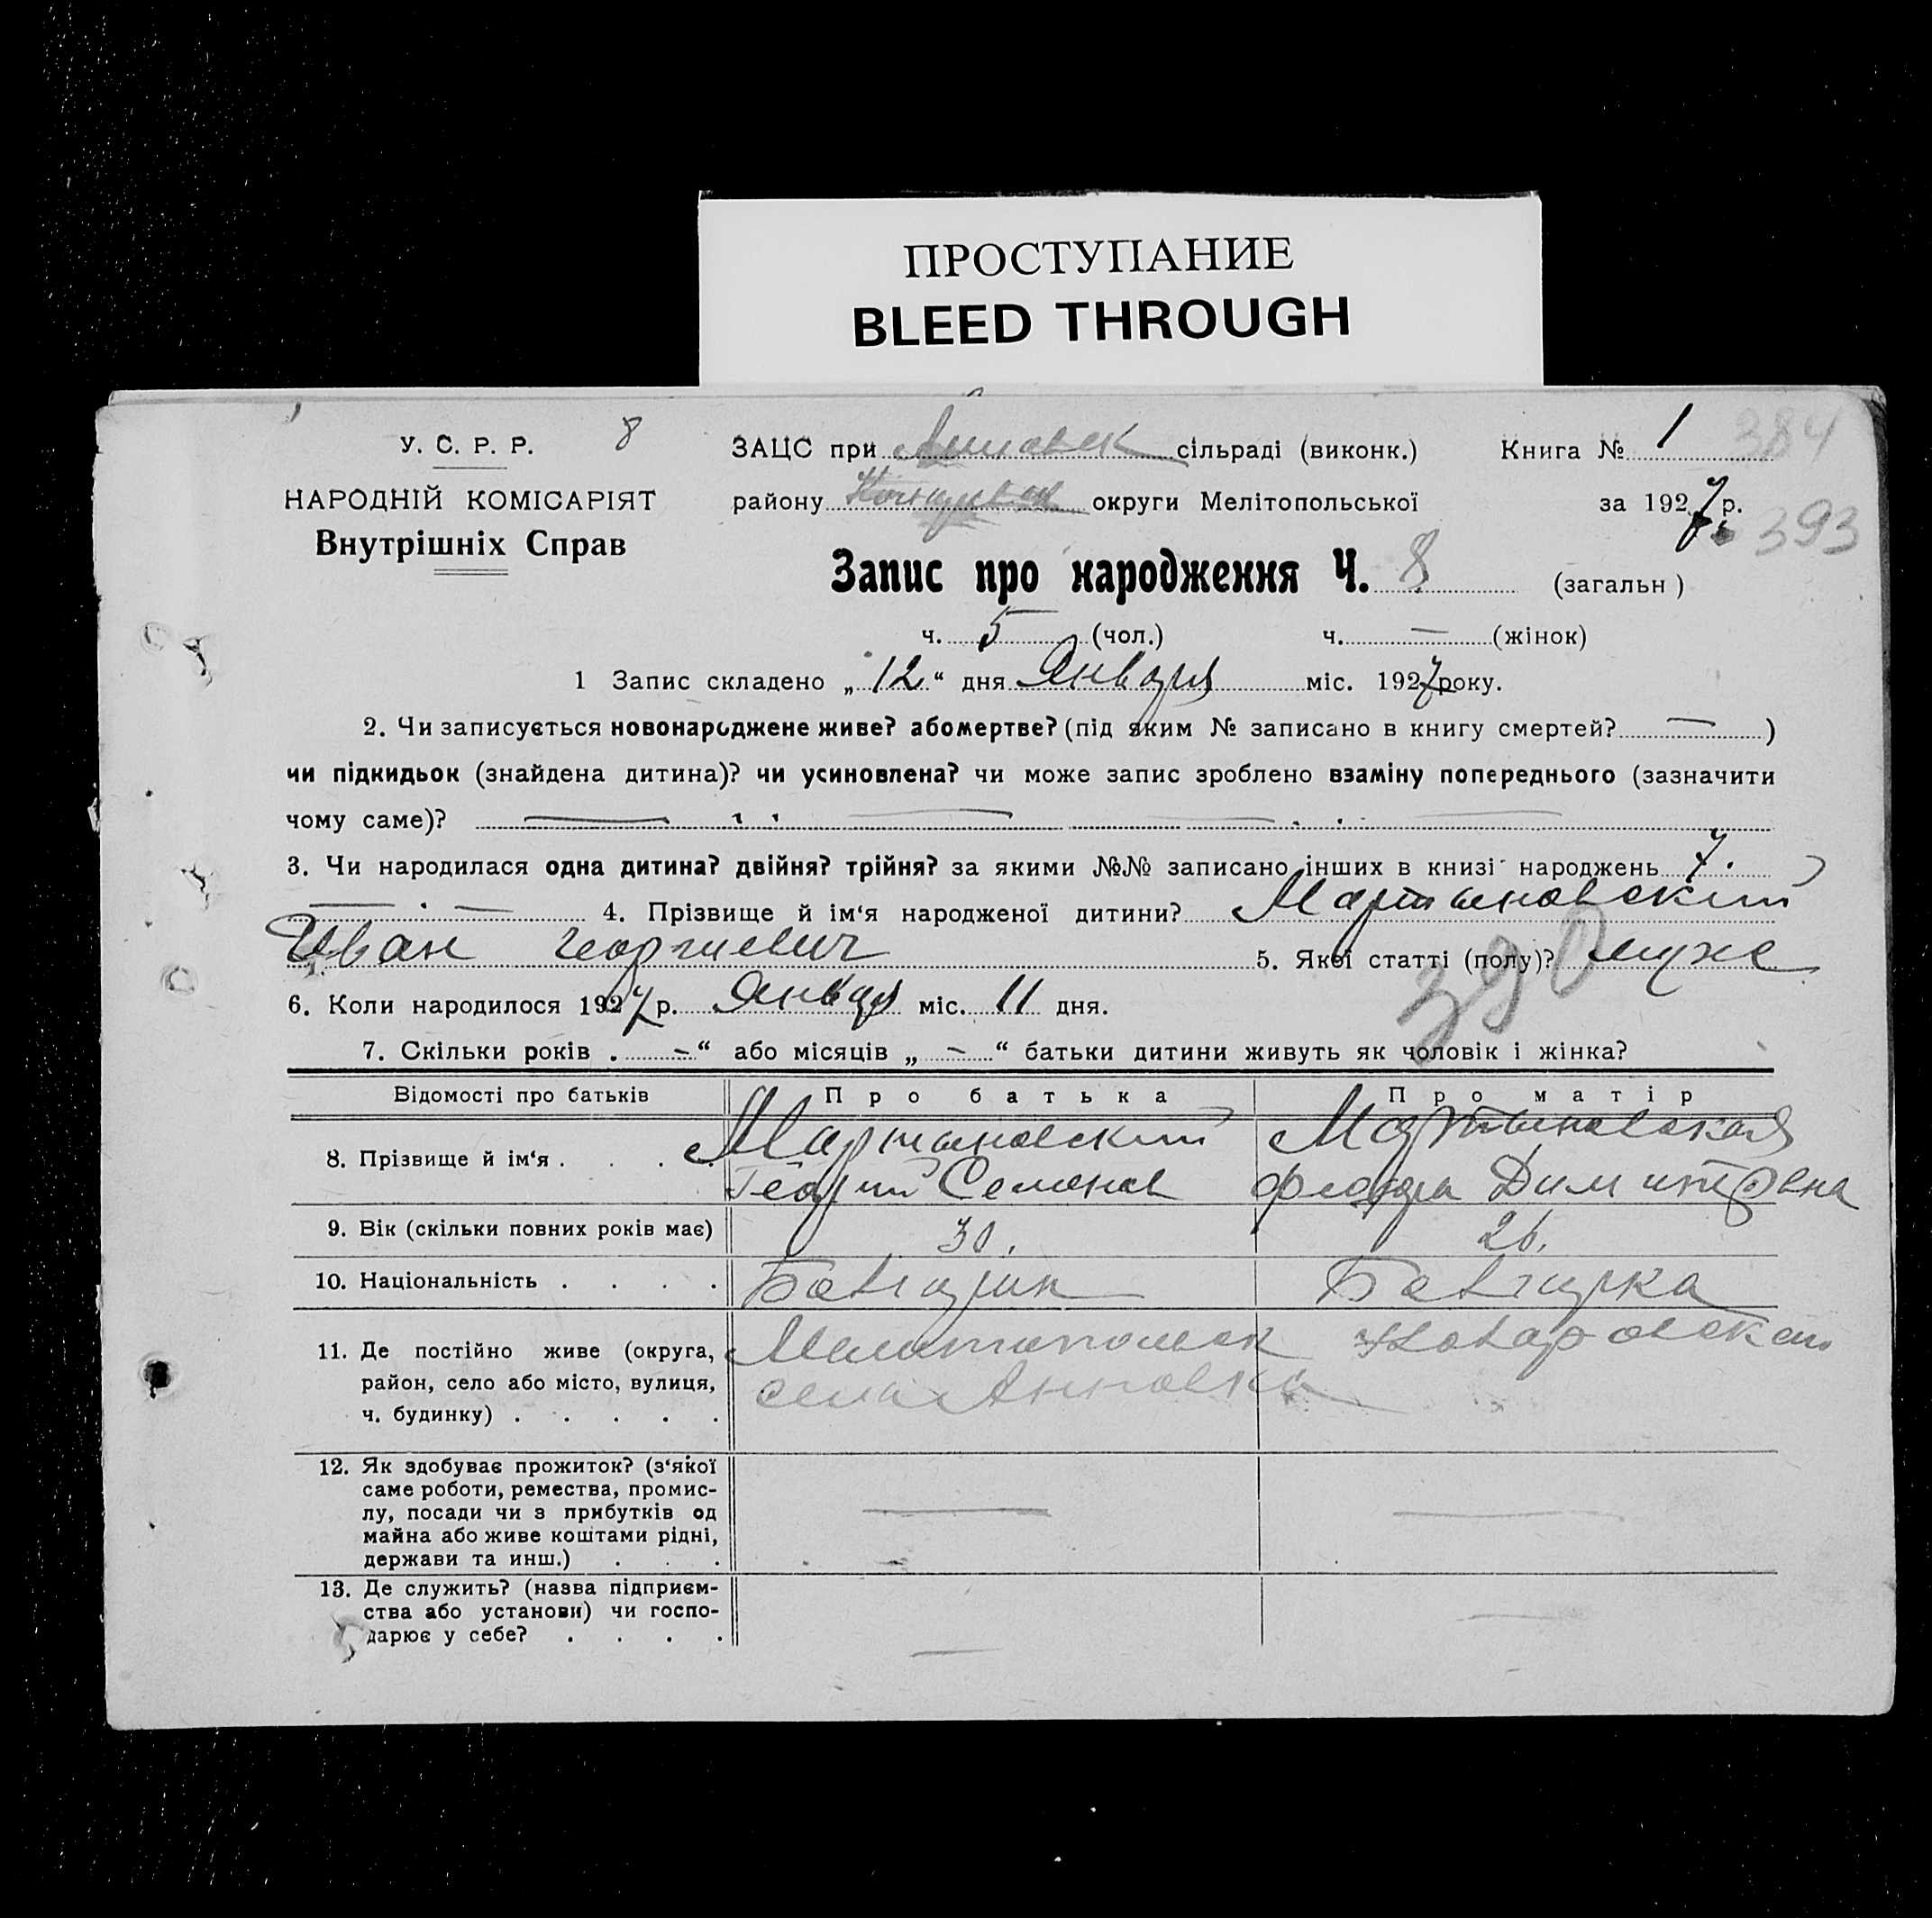 ПРОСТУПАНИЕ
BLEED THROUGH
У. С. Р. Р. 8 ЗАЦС при сільраді (виконк.) Книга № 1 384
НАРОДНІЙ КОМІСАРІЯТ району округи Мелітопольської за 1927 р.
Внутрішніх Справ 393
Запис про народження Ч. 8 (загальн )
ч. 5 (чол.) ч. — (жінок)
1 Запис складено „ 12 “ дня Января міс. 1927 року.
2. Чи записується новонароджене живе? або мертве? (під яким № записано в книгу смертей? — )
чи підкидьок (знайдена дитина)? чи усиновлена? чи може запис зроблено взаміну попереднього (зазначити
чому саме)?
3. Чи народилася одна дитина? двійня? трійня? за якими №№ записано інших в книзі народжень 7.
4. Прізвище й ім‘я народженої дитини? Мартыновский
Иван Георгиевич 5. Якої статті (полу)? муже
390
6. Коли народилося 1927 р. Январ міс. 11 дня.
7. Скільки років . – “ або місяців „ – “ батьки дитини живуть як чоловік і жінка?
Відомості про батьків Про батька Про матір
8. Прізвище й ім‘я . . . . Мартыновский Мартыновская
Георгий Семенов Димитровна
9. Вік (скільки повних років має) 30. 26.
10. Національність . . . . Болгарин Болгарка
11. Де постійно живе (округа,
район, село або місто, вулиця,
ч. будинку) . . . . .
села Анновка
12. Як здобуває прожиток? (з‘якої
саме роботи, ремества, промис-
лу, посади чи з прибутків од
майна або живе коштами рідні,
держави та инш.) . . .
13. Де служить? (назва підприєм-
ства або установи) чи госпо-
дарює у себе? . . . .